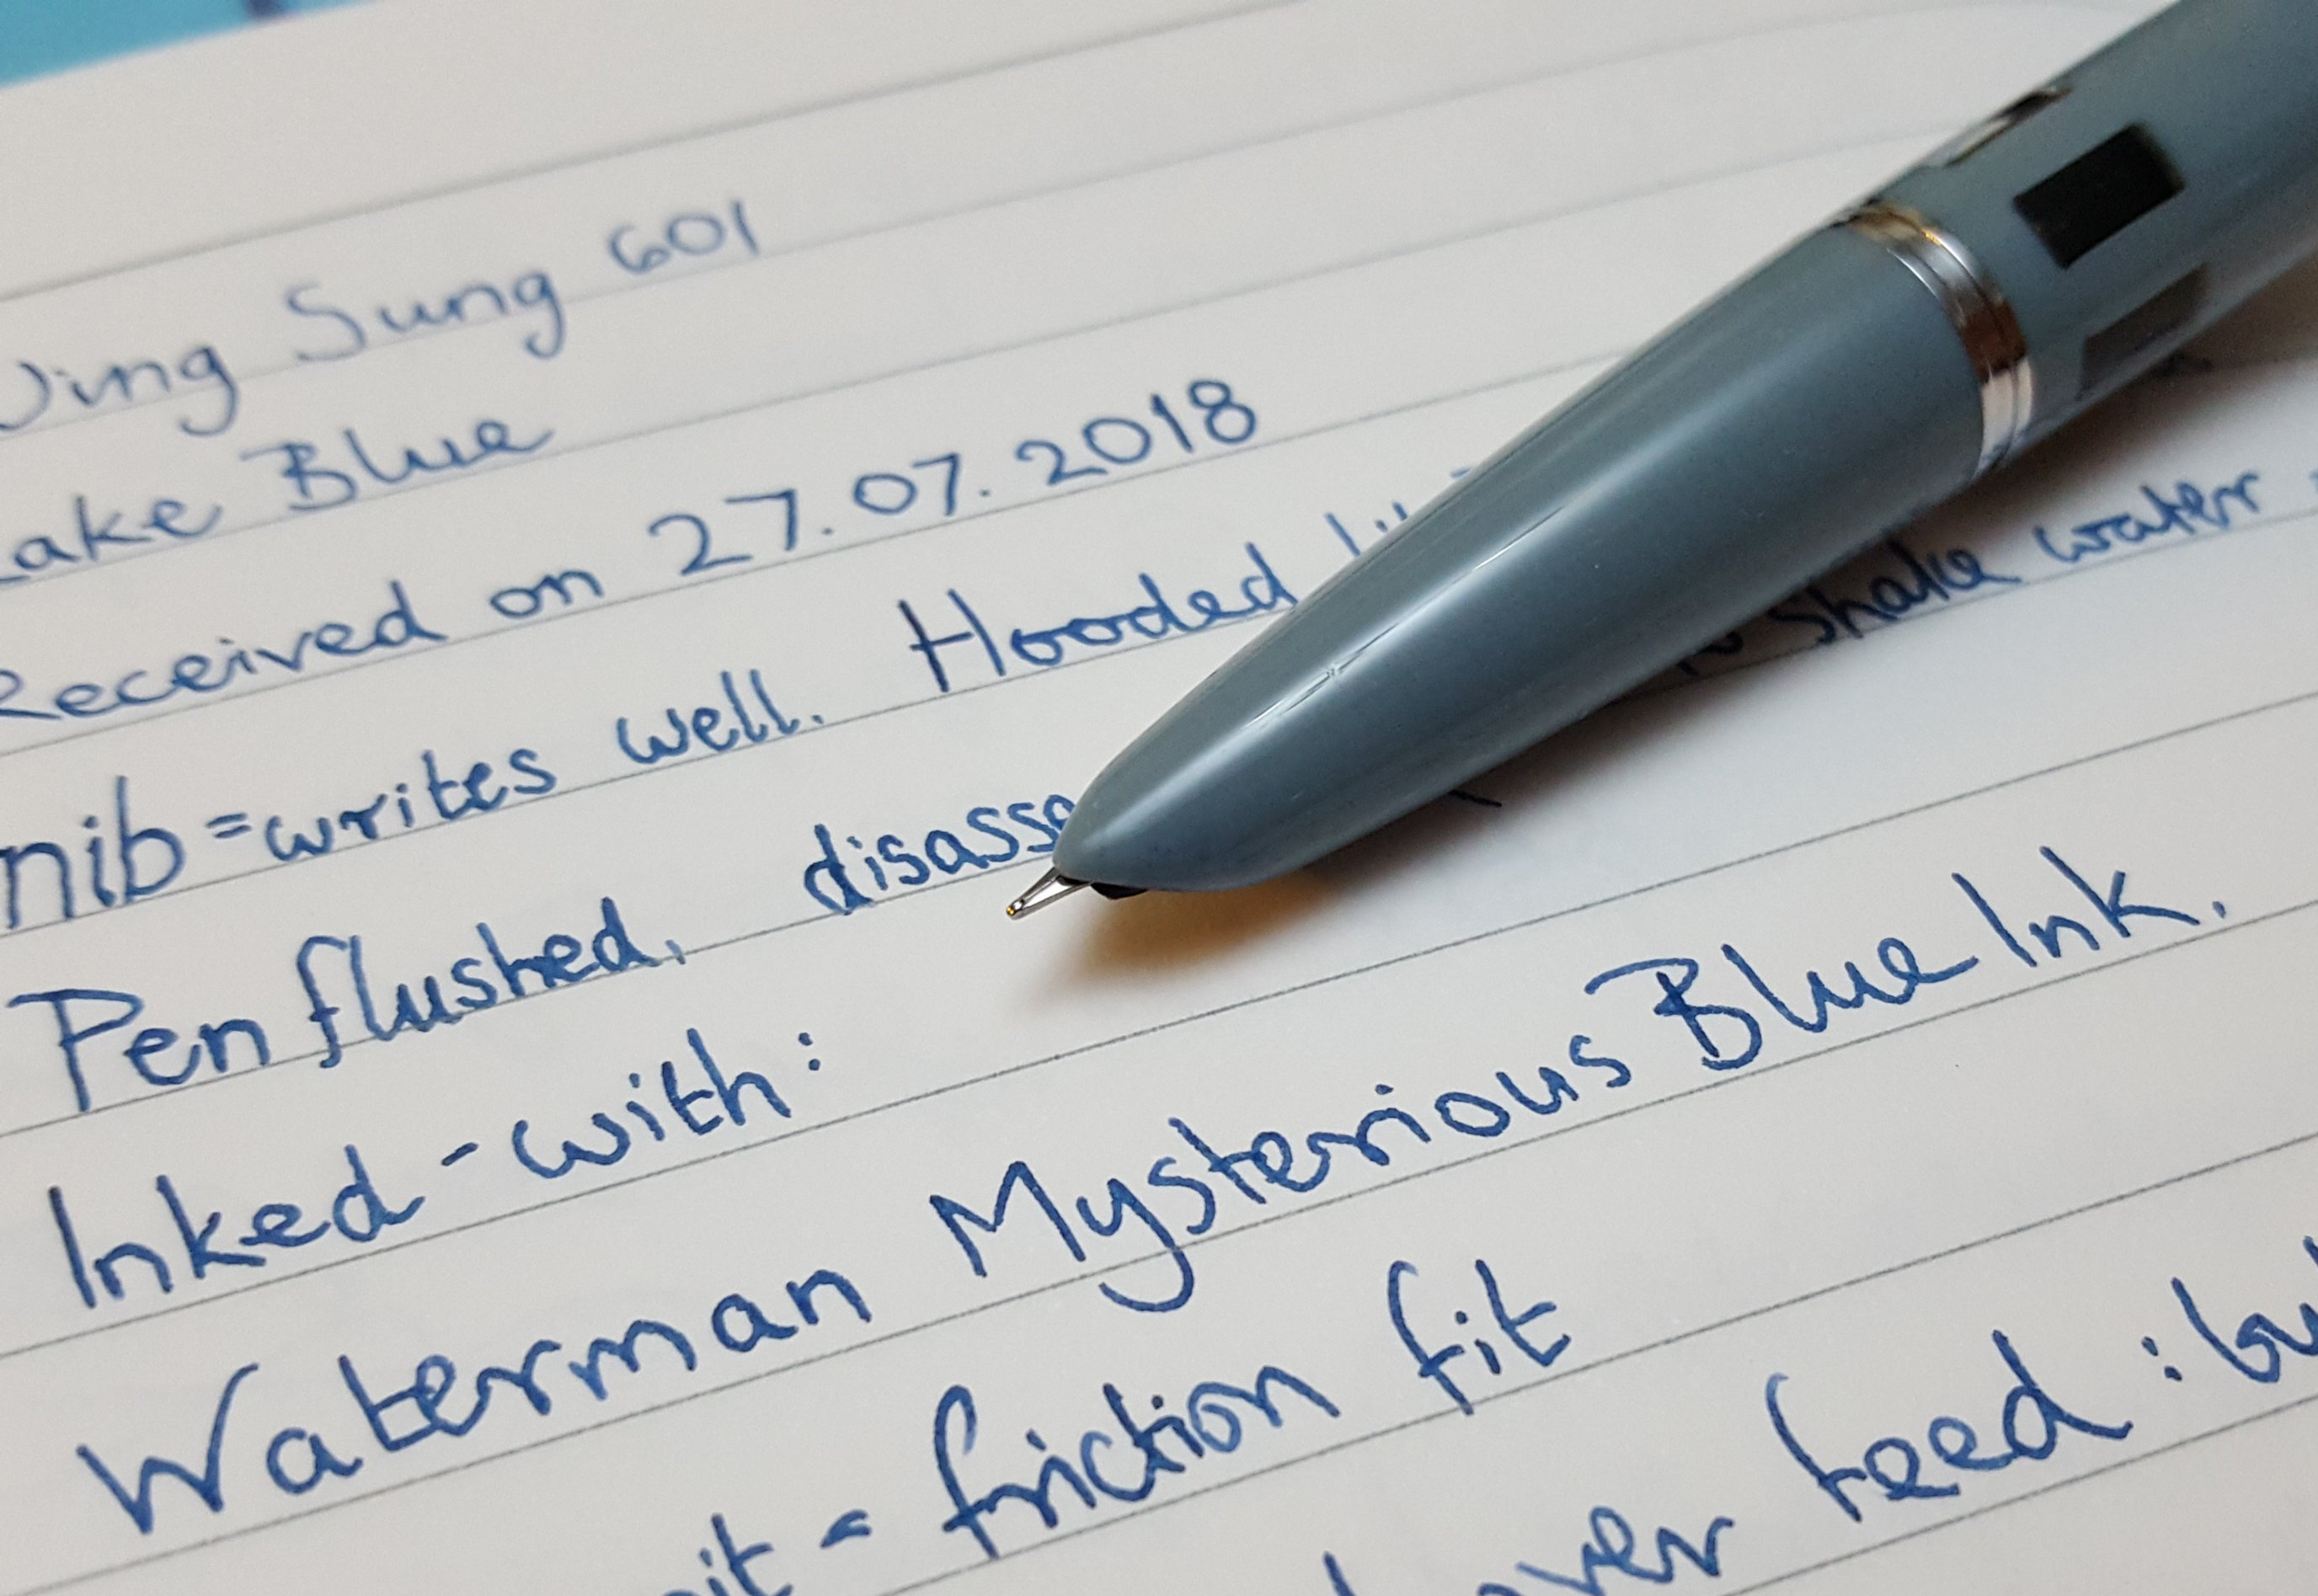 Wing Sung 601
Lake Blue
Received on 27.07.2018
nib = writes well. Hooded
Pen flushed, shake water
Inked - with:
Waterman Mysterious Blue Ink.
- friction fit
feed :